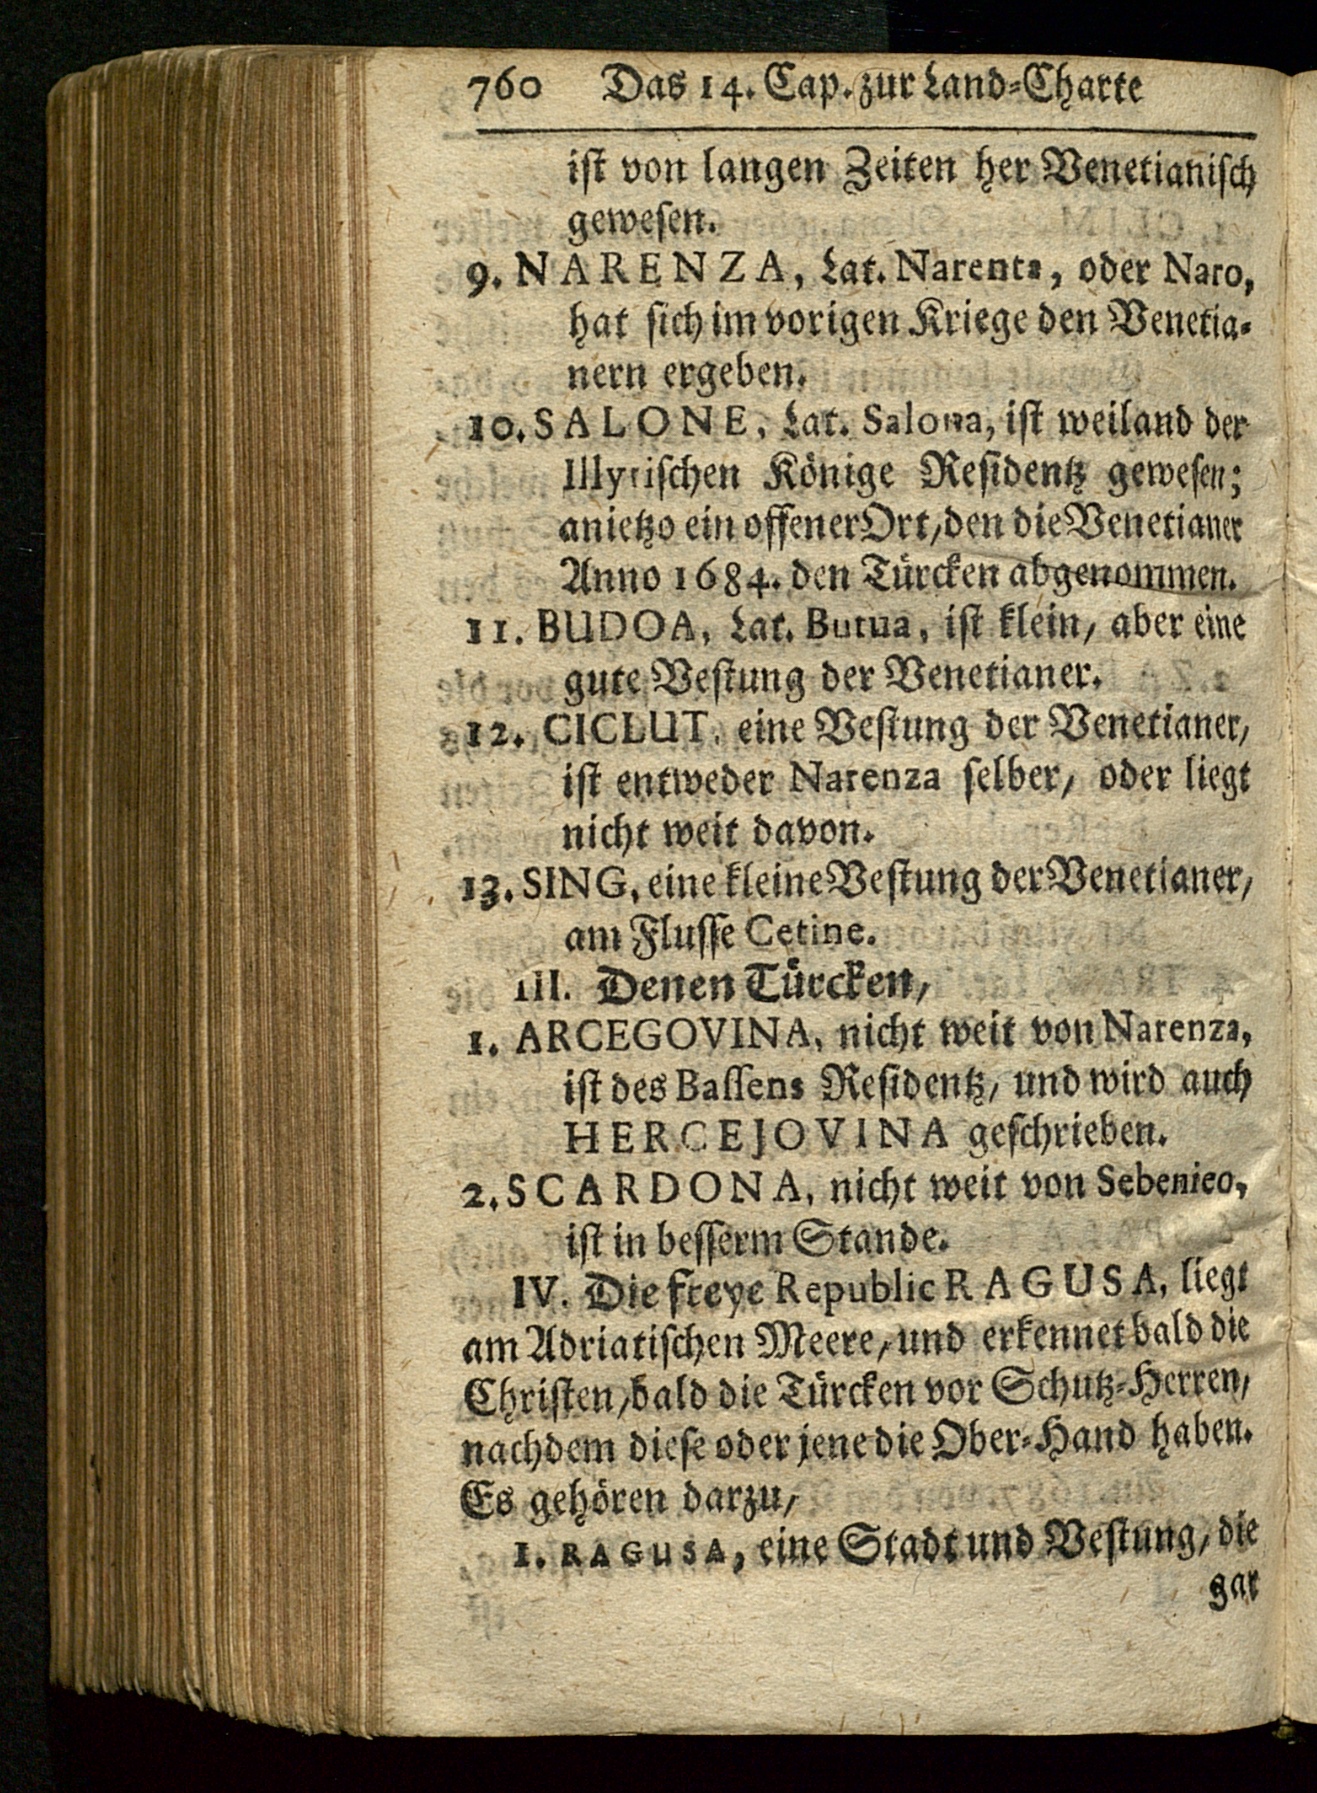 760 Das 14. Cap. zur Land-Charte
ist von langen Zeiten her Venetianisch
gewesen.
9. NARENZA, Lat. Narenta, oder Naro,
hat sich im vorigen Kriege den Venetia-
nern ergeben.
10. SALONE, Lat. Salona, ist weiland der
Illyrischen Könige Residentz gewesen;
anietzo ein offener Ort, den die Venetianer
Anno 1684. den Türcken abgenommen.
11. BUDOA, Lat. Butua, ist klein, aber eine
gute Vestung der Venetianer.
12. CICLUT, eine Vestung der Venetianer,
ist entweder Narenza selber, oder liegt
nicht weit davon.
13. SING, eine kleine Vestung der Venetianer,
am Flusse Cetine.
III. Denen Türcken,
1. ARCEGOVINA, nicht weit von Narenza,
ist des Bassens Residentz, und wird auch
HERCEJOVINA geschrieben.
2. SCARDONA, nicht weit von Sebenico,
ist in besserm Stande.
IV. Die freye Republic RAGUSA, liegt
am Adriatischen Meere, und erkennet bald die
Christen, bald die Türcken vor Schutz-Herren,
nachdem diese oder jene die Ober-Hand haben.
Es gehören darzu,
1. RAGUSA, eine Stadt und Vestung, die
gar